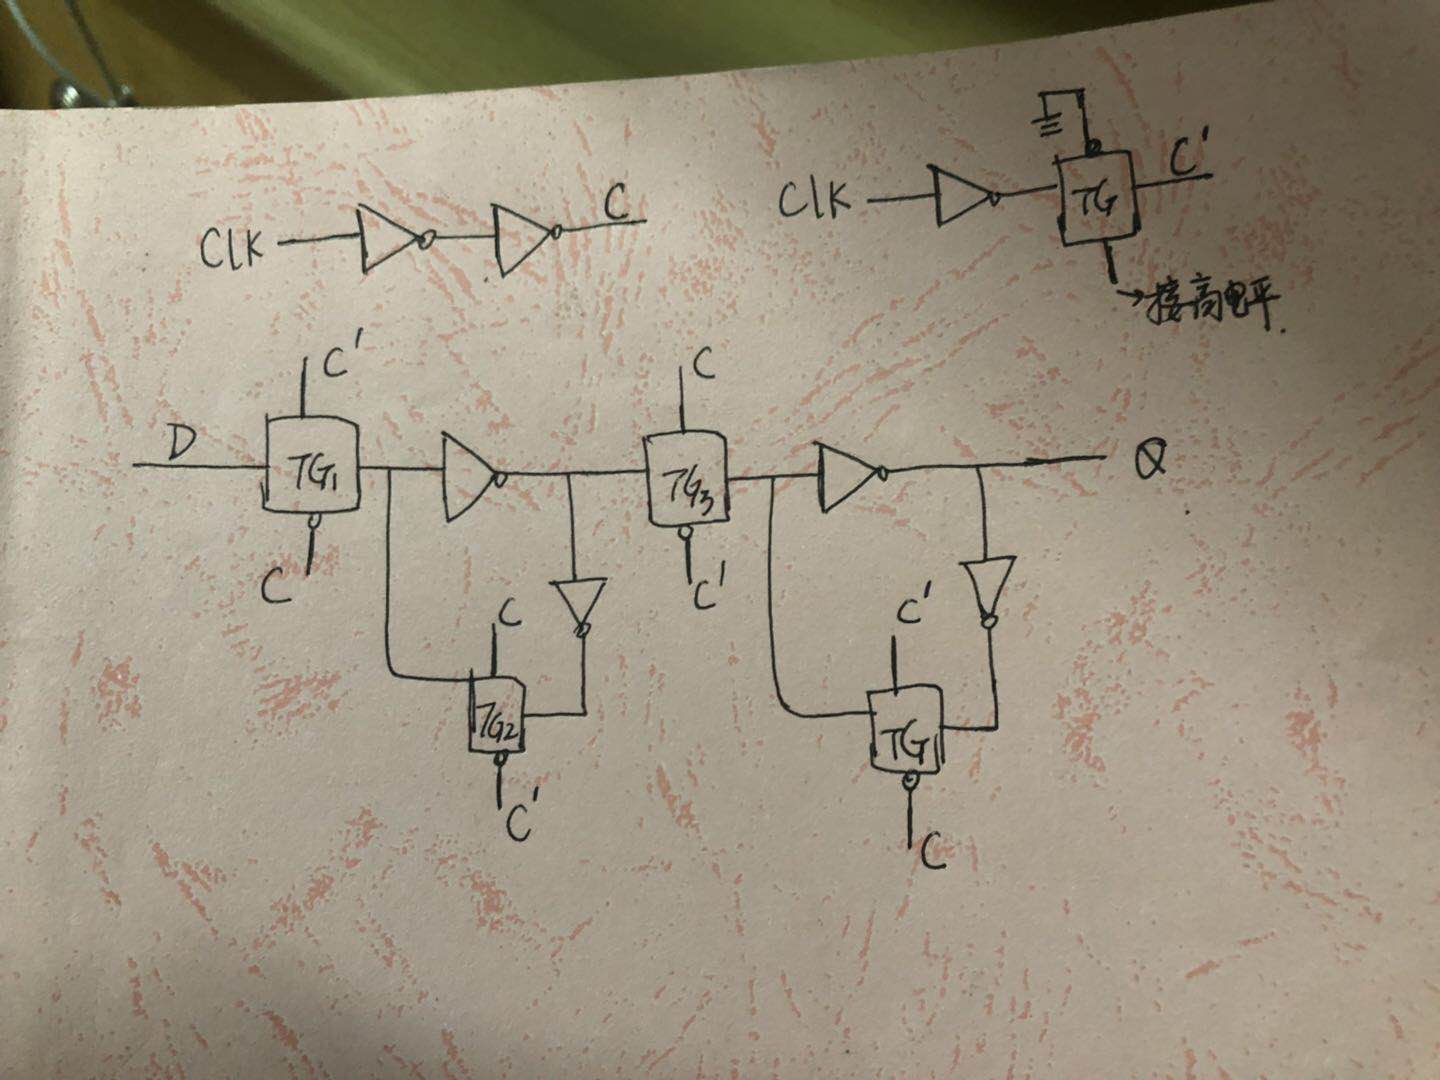 CLK
C
CLK
TG
C'
→接高电平.
C'
D
TG1
C
C
TG3
C'
Q
C
TG2
C'
C'
TG1
C